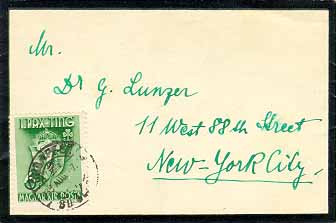 Mr.
Dr G. Lunzer
11 West 88th Street
New-York City.
PAX-TING
MAGYAR KIR. POSTA